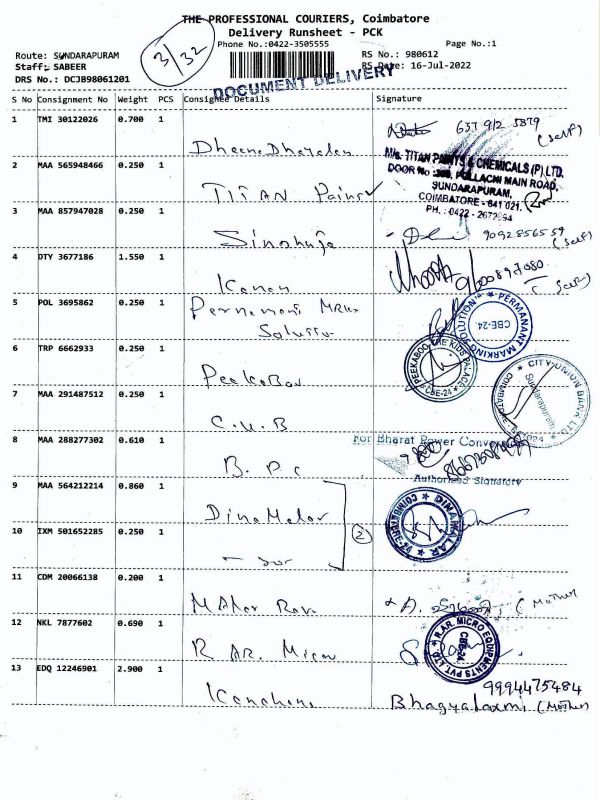 THE PROFESSIONAL COURIERS, Coimbatore
Delivery Runsheet - PCK
Phone No.:0422-3505555 Page No.:1
3/32
Route: SUNDARAPURAM RS No.: 980612
Staff: SABEER RS Date: 16-Jul-2022
DRS No.: DCJB98061201
DOCUMENT DELIVERY
S No Consignment No Weight PCS Consignee Details Signature
1 TMI 30122026 0.700 1
637 912 5879 (self)
Dheena Dhayalan
2 MAA 565948466 0.250 1
M/s. TITAN PAINTS & CHEMICALS (P) LTD.
POLLACHI MAIN ROAD,
SUNDARAPURAM,
COIMBATORE - 641 021.
TITAN Paints
3 MAA 857947028 0.250 1
9092856559 (self)
4 DTY 3677186 1.550 1
(self)
Kanan
5 POL 3695862 0.250 1
PERMANANT MARKING SOLUTION
CBE-24.
6 TRP 6662933 0.250 1
PEEKABOO THE KIDS PALACE
CBE-24
7 MAA 291487512 0.250 1
CITY UNION BANK LTD.
Sundarapuram
C.U.B
8 MAA 288277302 0.610 1
For Bharat Power
Authorised Signatory
B.P.C
9 MAA 564212214 0.860 1
DINAMALAR
DinaMalar
10 IXM 501652285 0.250 1
2
11 CDM 20066138 0.200 1
(Mother
12 NKL 7877602 0.690 1
R.AR. MICRO EQUIPMENTS PVT. LTD
CBE-24
R AR. Micro
13 EDQ 12246901 2.900 1
9994475484
Bhagyalaxmi (Mother)